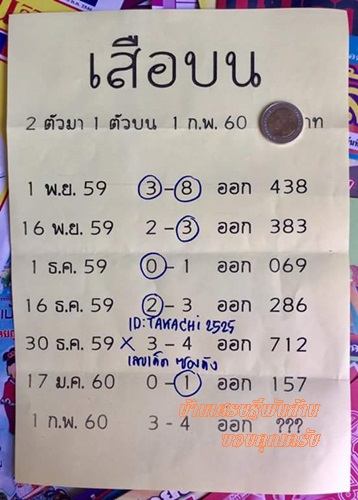 เสือบน
2 ตัวมา 1 ตัวบน 1 ก.พ. 60 าท
1 พ.ย. 59 3-8 ออก 438
16 พ.ย. 59 2-3 ออก 383
1 ธ.ค. 59 0-1 ออก 069
16 ธ.ค. 59 2-3 ออก 286
ID:TAKACHI 2525
30 ธ.ค. 59 x 3-4 ออก 712
เลขเด็ด ซองดัง
17 ม.ค. 60 0-1 ออก 157
1 ก.พ. 60 3-4 ออก ???